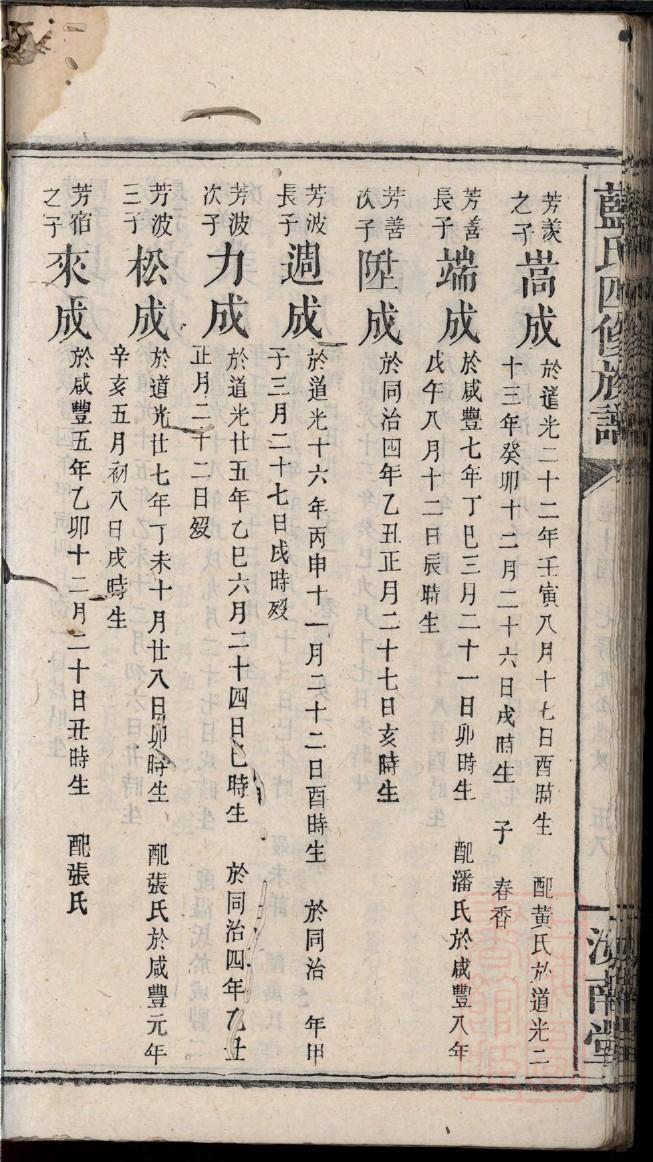 藍氏四修族譜
汝南堂
芳羨之子 嵩成 於道光二十二年壬寅八月十七日酉時生 配黃氏於道光二
十三年癸卯十二月二十六日戌時生 子 春香
芳善長子 端成 於咸豐七年丁巳三月二十一日卯時生 配潘氏於咸豐八年
戊午八月十二日辰時生
芳善次子 陞成 於同治四年乙丑正月二十七日亥時生
芳波長子 週成 於道光十六年丙申十一月二十二日酉時生 於同治 年甲
子三月二十七日戌時歿
芳波次子 力成 於道光廿五年乙巳六月二十四日巳時生 於同治四年乙丑
正月二十二日歿
芳波三子 松成 於道光廿七年丁未十月廿八日卯時生 配張氏於咸豐元年
辛亥五月初八日戌時生
芳宿之子 來成 於咸豐五年乙卯十二月二十日丑時生 配張氏